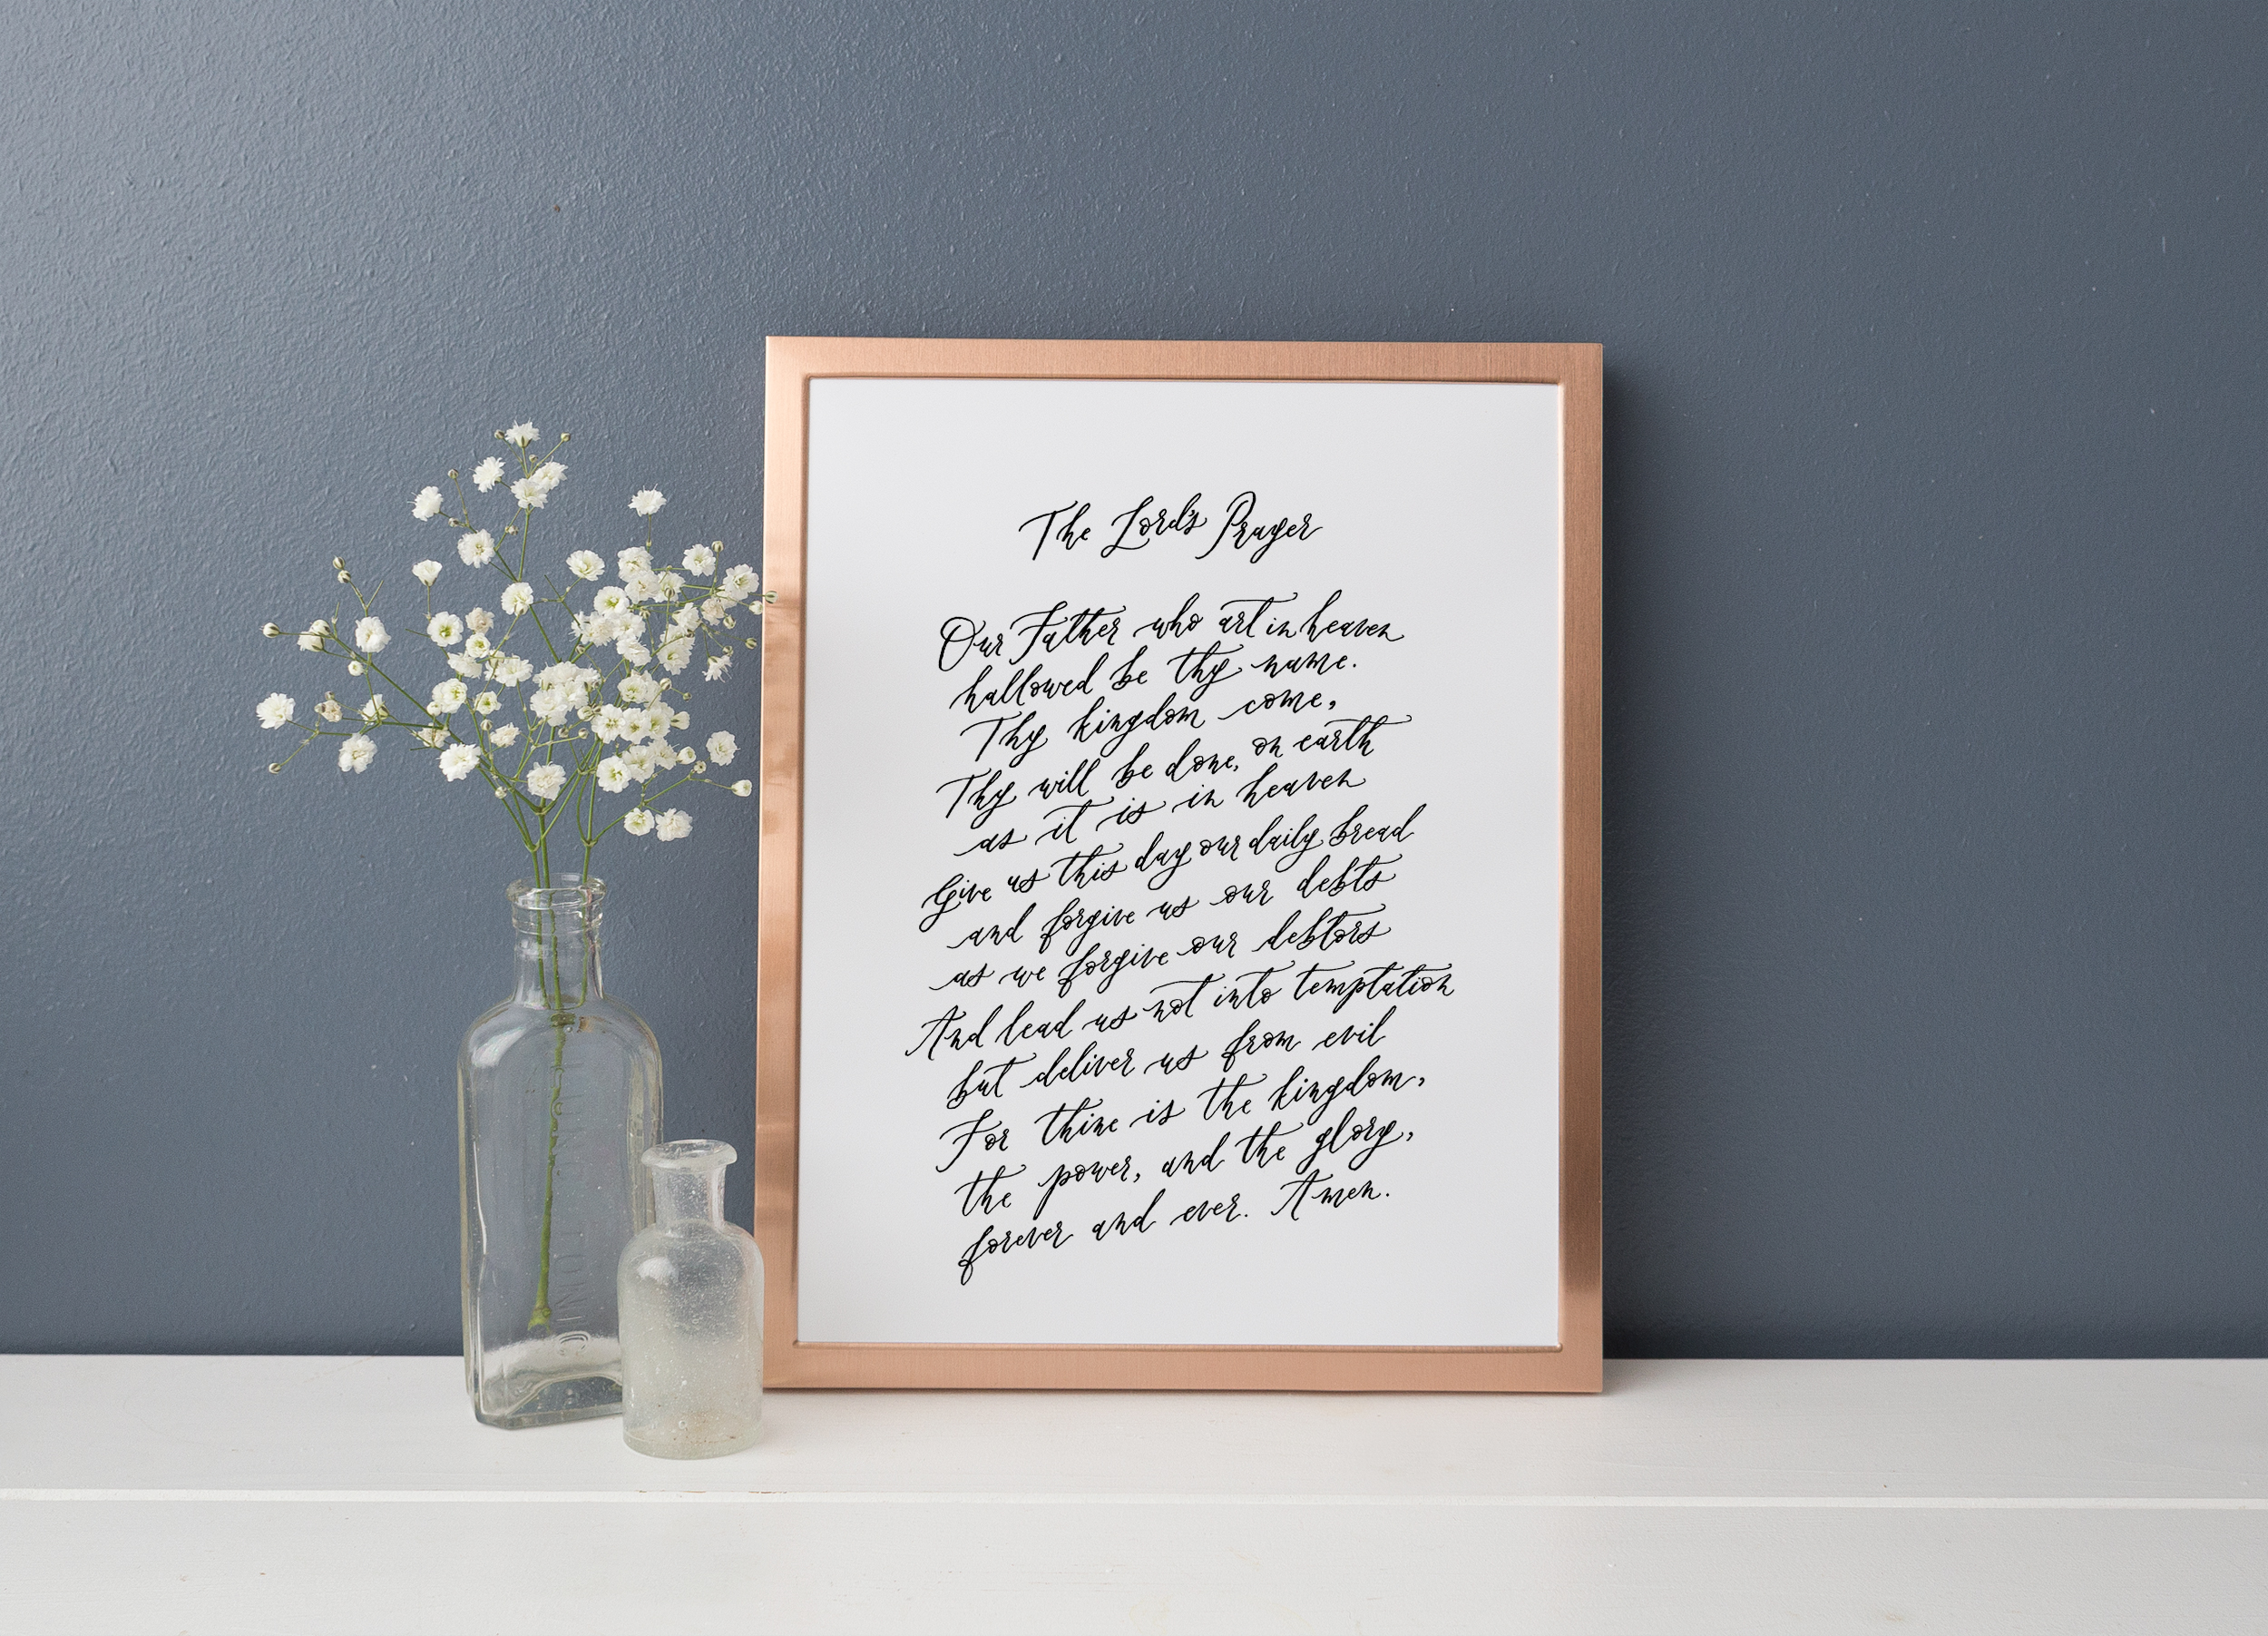 The Lord's Prayer
Our Father who art in heaven
hallowed be thy name.
Thy kingdom come,
Thy will be done, on earth
as it is in heaven
Give us this day our daily bread
and forgive us our debts
as we forgive our debtors
And lead us not into temptation
but deliver us from evil
For thine is the kingdom,
the power, and the glory,
forever and ever. Amen.